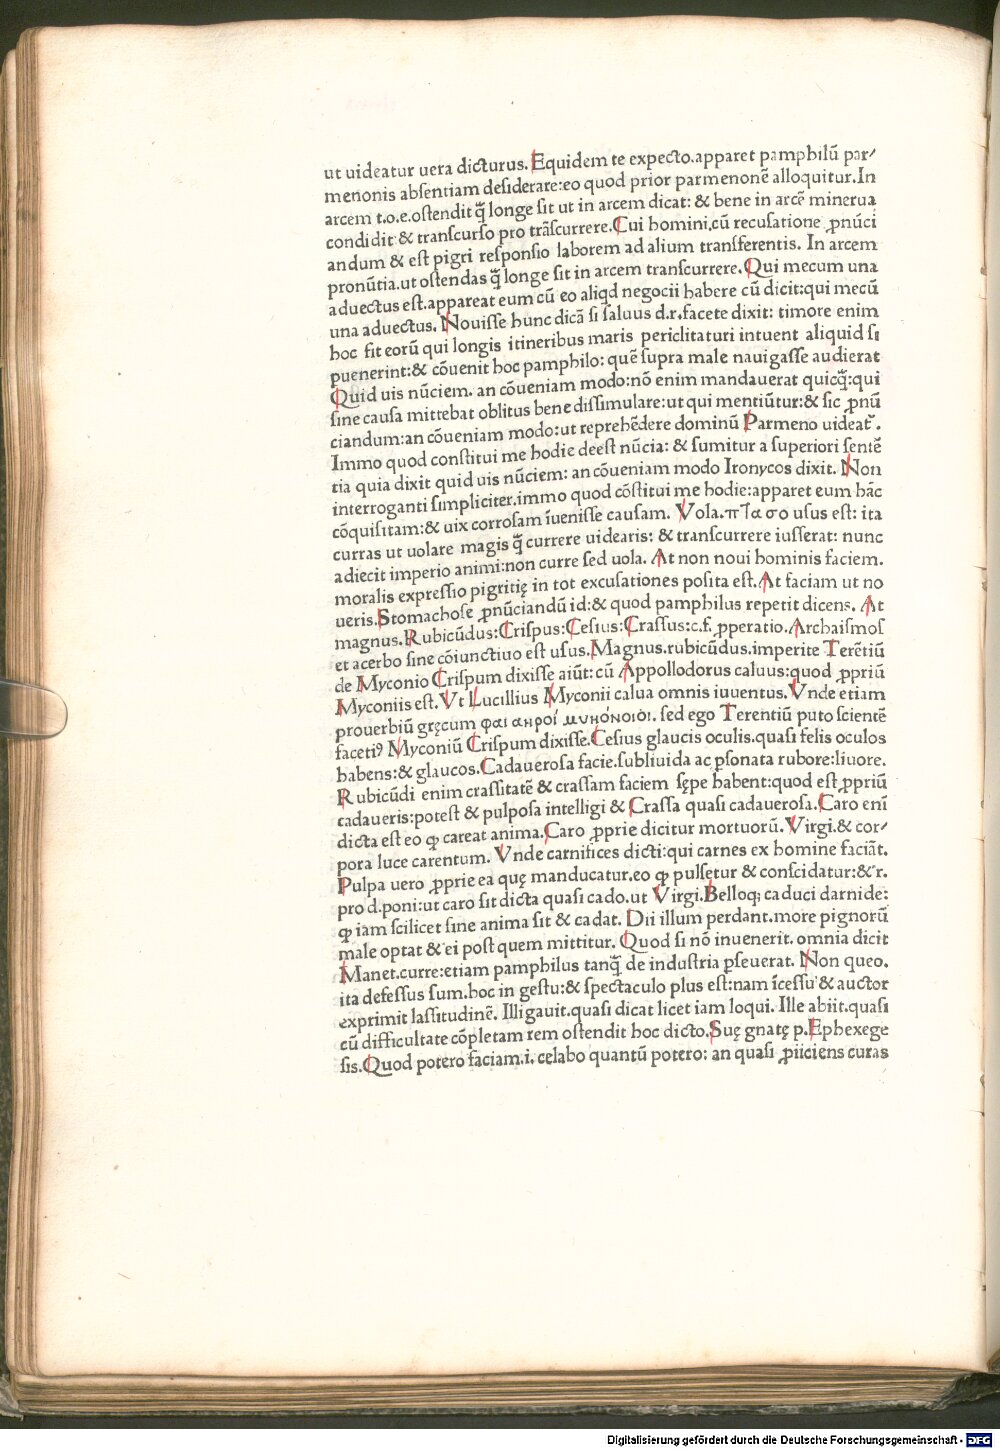 ut uideatur uera dicturus. Equidem te expecto.apparet pamphilū par/
menonis absentiam desiderare:eo quod prior parmenonē alloquitur.In
arcem t.o.e.ostendit q̄ longe sit ut in arcem dicat: & bene in arcē minerua
condidit & transcurso pro trāscurrere.Cui homini.cū recusatione ꝓnūci
andum & est pigri responsio laborem ad alium transferentis. In arcem
pronūtia.ut ostendas q̄ longe sit in arcem transcurrere.Qui mecum una
aduectus est.appareat eum cū eo aliqd negocii habere cū dicit:qui mecū
una aduectus. Nouisse hunc dicā si saluus d.r.facete dixit: timore enim
hoc fit eorū qui longis itineribus maris periclitaturi intuent aliquid si
puenerint:& cōuenit hoc pamphilo: quē supra male nauigasse audierat
Quid uis nūciem. an cōueniam modo:nō enim mandauerat quicq̄:qui
sine causa mittebat oblitus bene dissimulare:ut qui mentiūtur:& sic ꝓnū
ciandum:an cōueniam modo:ut reprehēdere dominū Parmeno uideat᷑.
Immo quod constitui me hodie deest nūcia: & sumitur a superiori sentē
tia quia dixit quid uis nūciem: an cōueniam modo Ironycos dixit. Non
interroganti simpliciter.immo quod cōstitui me hodie:apparet eum hāc
cōquisitam:& uix corrosam īuenisse causam. Vola.πῖασο usus est: ita
curras ut uolare magis q̄ currere uidearis: & transcurrere iusserat: nunc
adiecit imperio animi:non curre sed uola. At non noui hominis faciem.
moralis expressio pigritię in tot excusationes posita est.At faciam ut no
ueris.Stomachose ꝓnūciandū id:& quod pamphilus repetit dicens. At
magnus.Rubicūdus:Crispus:Cesius:Crassus:c.f.ꝓperatio.Archaismos
et acerbo sine cōiunctiuo est usus.Magnus.rubicūdus.imperite Terētiū
de Myconio Crispum dixisse aiūt:cū Appollodorus caluus:quod ꝓpriū
Myconiis est.Vt Lucillius Myconii calua omnis iuuentus.Vnde etiam
prouerbiū gręcum φαι ακροί μυκόνοιοι. sed ego Terentiū puto scientē
facetiꝰ Myconiū Crispum dixisse.Cesius glaucis oculis.quasi felis oculos
habens:& glaucos.Cadauerosa facie.subliuida ac ꝑsonata rubore:liuore.
Rubicūdi enim crassitatē & crassam faciem sępe habent:quod est ꝓpriū
cadaueris:potest & pulposa intelligi & Crassa quasi cadauerosa.Caro enī
dicta est eo ꝙ careat anima.Caro ꝓprie dicitur mortuorū.Virgi.& cor/
pora luce carentum. Vnde carnifices dicti:qui carnes ex homine faciāt.
Pulpa uero ꝓprie ea quę manducatur.eo ꝙ pulsetur & conscidatur:& r.
pro d.poni:ut caro sit dicta quasi cado.ut Virgi.Belloq; caduci darnide:
ꝙ iam scilicet sine anima sit & cadat. Dii illum perdant.more pignorū
male optat & ei post quem mittitur. Quod si nō inuenerit. omnia dicit
Manet.curre:etiam pamphilus tanq̄ de industria ꝑseuerat. Non queo.
ita defessus sum.hoc in gestu:& spectaculo plus est:nam īcessu & auctor
exprimit lassitudinē. Illigauit.quasi dicat licet iam loqui. Ille abiit.quasi
cū difficultate cōpletam rem ostendit hoc dicto.Suę gnatę p.Ephexege
sis.Quod potero faciam.i. celabo quantū potero: an quasi ꝓiiciens curas
Digitalisierung gefördert durch die Deutsche Forschungsgemeinschaft - DFG